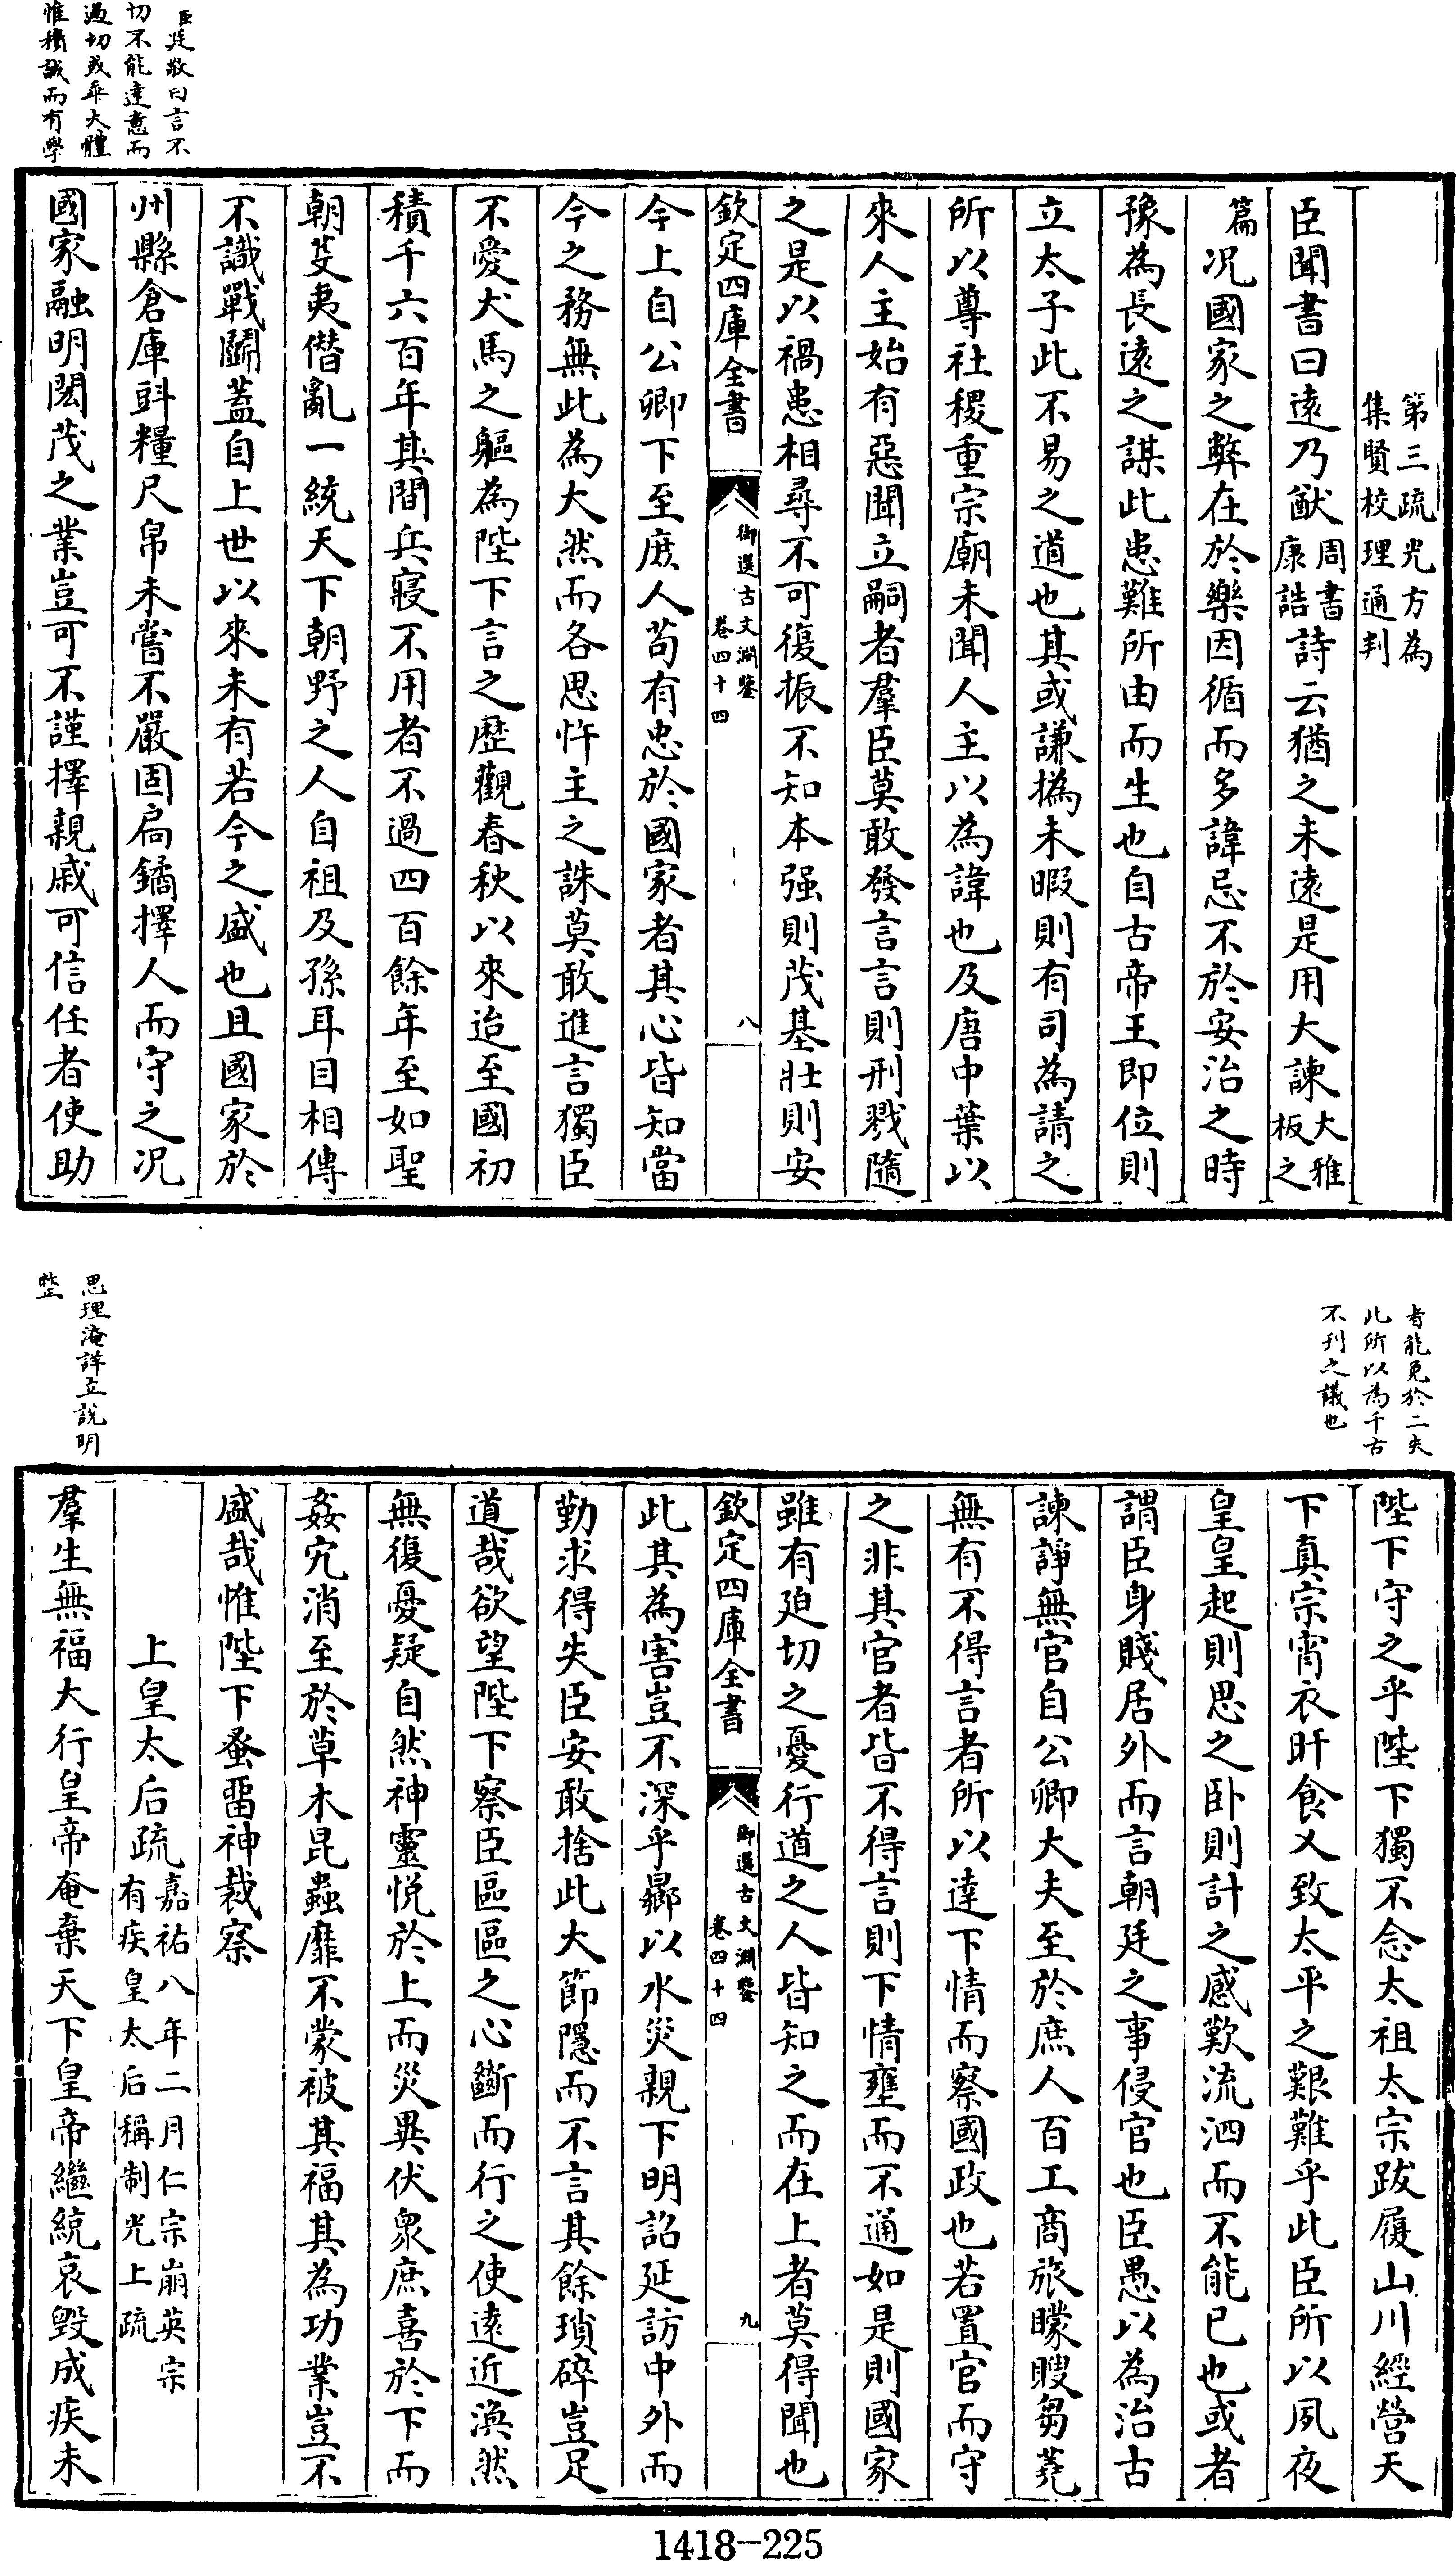 臣廷敬曰言不
切不能達意而
過切或乖大體
惟積誠而有學
第三疏光方為
集賢校理通判
臣聞書曰遠乃猷周書康誥詩云猶之未遠是用大諫大雅板之
篇况國家之弊在於樂因循而多諱忌不於安治之時
豫為長遠之謀此患難所由而生也自古帝王即位則
立太子此不易之道也其或謙撝未暇則有司為請之
所以尊社稷重宗廟未聞人主以為諱也及唐中葉以
來人主始有惡聞立嗣者羣臣莫敢發言言則刑戮隨
之是以禍患相尋不可復振不知本强則茂基壯則安
欽定四庫全書 御選古文淵鑒 卷四十四 八
今上自公卿下至庶人苟有忠於國家者其心皆知當
今之務無此為大然而各思忤主之誅莫敢進言獨臣
不愛犬馬之軀為陛下言之歷觀春秋以來迨至國初
積千六百年其間兵寢不用者不過四百餘年至如聖
朝芟夷僭亂一統天下朝野之人自祖及孫耳目相傳
不識戰鬭蓋自上世以來未有若今之盛也且國家於
州縣倉庫㪷糧尺帛未嘗不嚴固扃鐍擇人而守之况
國家融明閎茂之業豈可不謹擇親戚可信任者使助
者能免於二失
此所以為千古
不刊之議也
思理淹詳立說明
整
陛下守之乎陛下獨不念太祖太宗跋履山川經營天
下真宗宵衣旰食乂致太平之艱難乎此臣所以夙夜
皇皇起則思之卧則計之感歎流泗而不能已也或者
謂臣身賤居外而言朝廷之事侵官也臣愚以為治古
諫諍無官自公卿大夫至於庶人百工商旅矇瞍芻蕘
無有不得言者所以達下情而察國政也若置官而守
之非其官者皆不得言則下情壅而不通如是則國家
雖有廹切之憂行道之人皆知之而在上者莫得聞也
欽定四庫全書 御選古文淵鑒 卷四十四 九
此其為害豈不深乎曏以水災親下明詔延訪中外而
勤求得失臣安敢捨此大節隱而不言其餘瑣碎豈足
道哉欲望陛下察臣區區之心斷而行之使遠近渙然
無復憂疑自然神靈悅於上而災異伏衆庶喜於下而
姦宄消至於草木昆蟲靡不蒙被其福其為功業豈不
盛哉惟陛下蚤畱神裁察
上皇太后疏嘉祐八年二月仁宗崩英宗有疾皇太后稱制光上疏
羣生無福大行皇帝奄棄天下皇帝繼統哀毀成疾未
1418-225